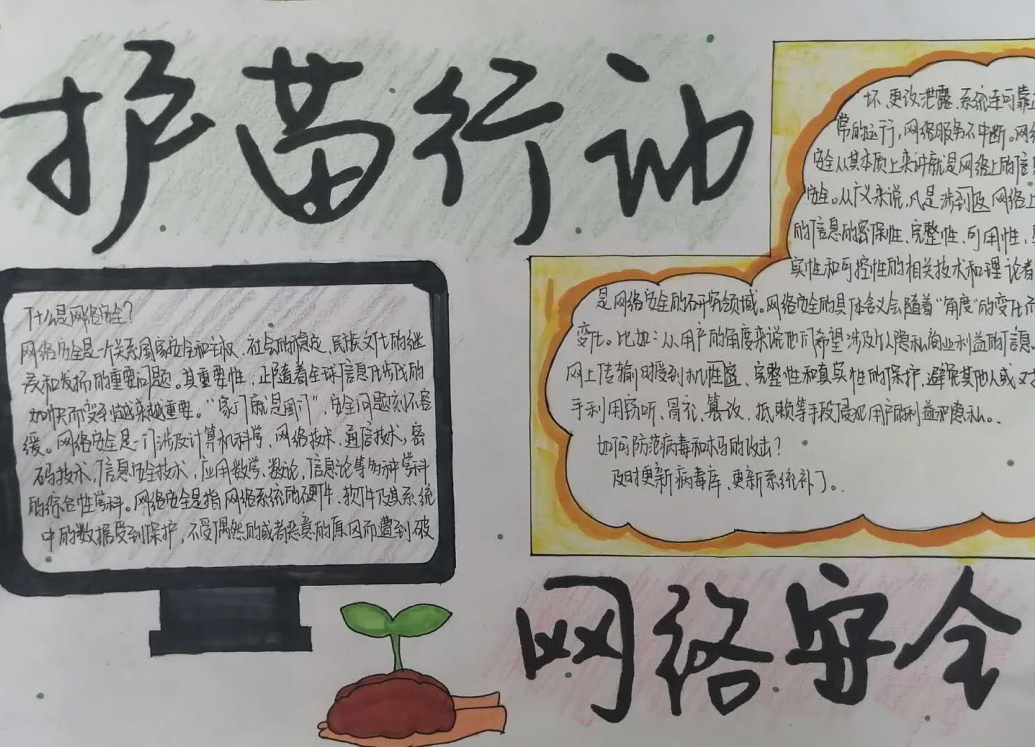 护苗行动
什么是网络安全?
网络安全是一个关系国家安全和主权、社会的稳定、民族文化的继
承和发扬的重要问题。其重要性,正随着全球信息化步伐的
加快而变到越来越重要。“家门就是国门”,安全问题刻不容
缓。网络安全是一门涉及计算机科学、网络技术、通信技术、密
码技术、信息安全技术、应用数学、数论、信息论等多种学科
的综合性学科。网络安全是指网络系统的硬件、软件及其系统
中的数据受到保护,不受偶然的或者恶意的原因而遭到破
坏、更改泄露、系统连可靠
常的运行,网络服务不中断。网
安全从其本质上来讲就是网络上的信息
安全。从广义来说,凡是涉到及网络上
的信息的密保性、完整性、可用性、
实性和可控性的相关技术和理论者
是网络安全的研究领域。网络安全的具体含义会随着“角度”的变化而
变化。比如:从用户的角度来说他们希望涉及个人隐私商业利益的信息
网上传输时受到机性密、完整性和真实性的保护,避免其他人或
手利用窃听、冒充、篡改、抵赖等手段侵犯用户的利益和隐私。
如何防范病毒和木马的攻击?
及时更新病毒库、更新系统补丁。
网络安全